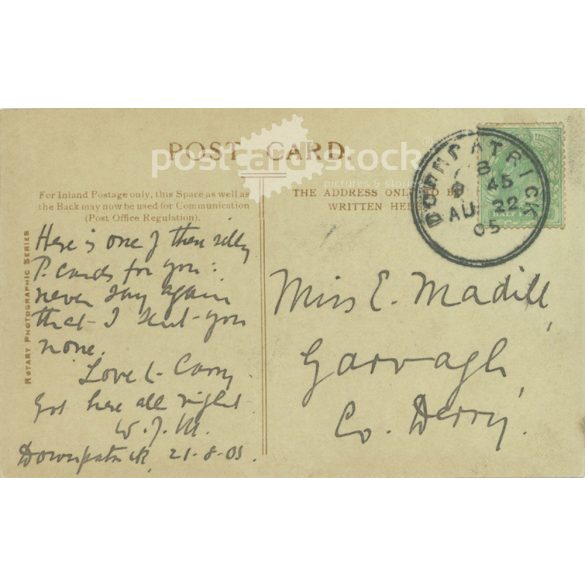 POST CARD.
postcard stock
For Inland Postage only, this Space as well as
the Back may now be used for Communication
(Post Office Regulation).
THE ADDRESS ONLY
WRITTEN
DOWNPATRICK
8
9 45
AU 22
05
ROTARY PHOTOGRAPHIC SERIES
Here is one of them silly
P. cards for you:
never say again
that I sent you
none.
Love to Carry
Got here all right.
W. J. M.
Downpatrick, 21-8-05.
Miss E. Madill,
Garvagh,
Co. Derry.